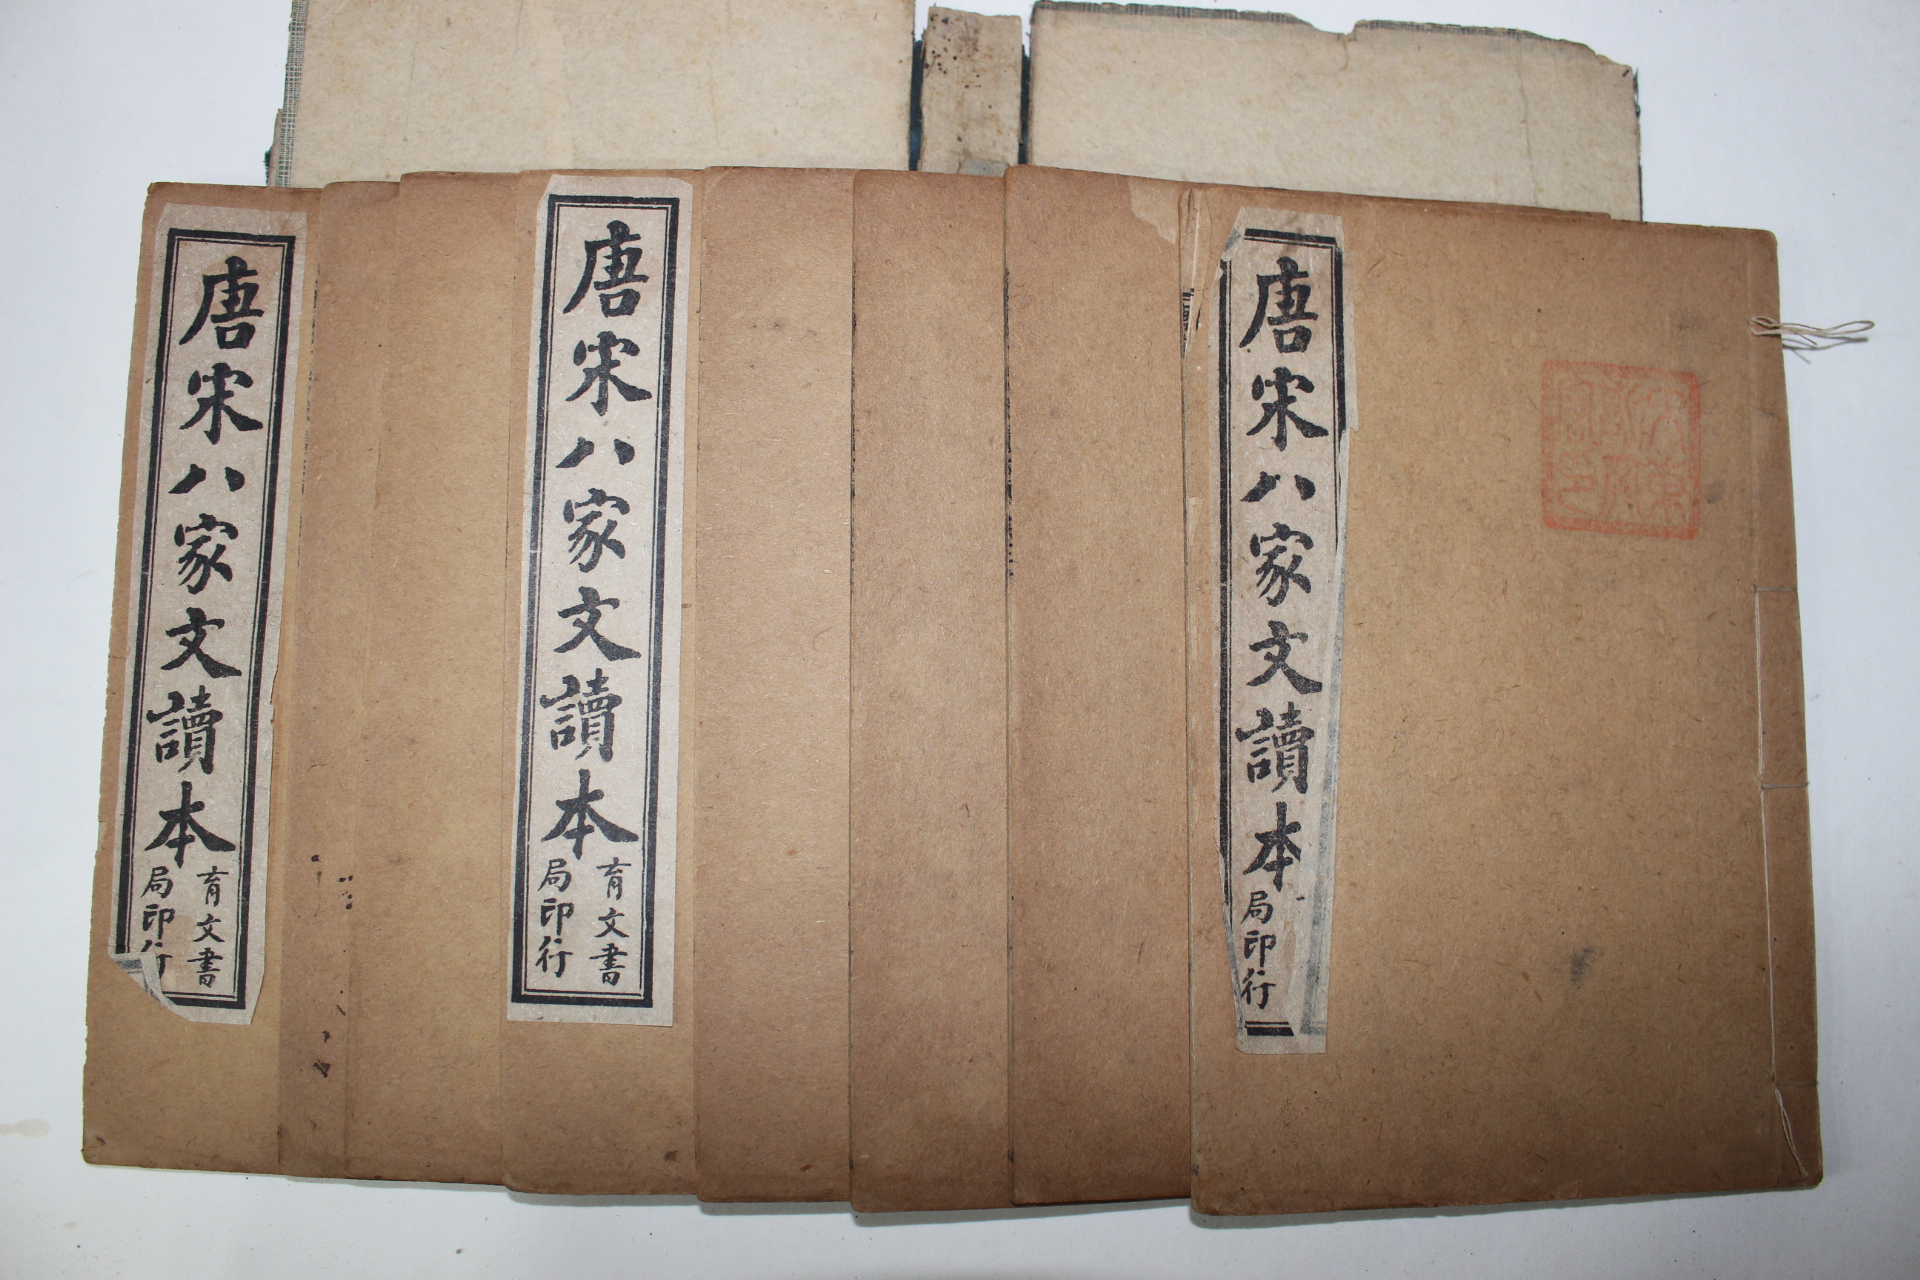 唐宋八家文讀本
局印行
唐宋八家文讀本
育文書
局印行
唐宋八家文讀本
育文書
局印行